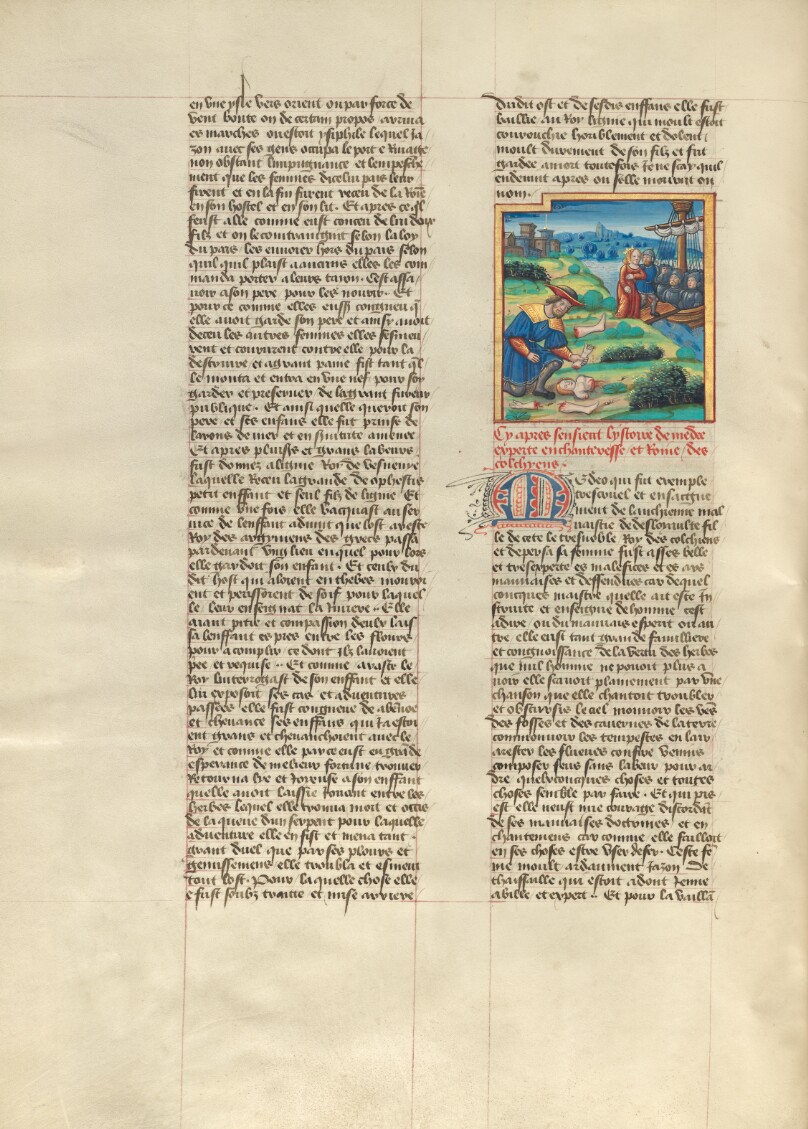 en une ysle vers orient ou par force de
vent boute ou de certain propos arriua
es marches ou estoit ysiphile lequel ja
zon auec ses gens occupa le port et riuage
non obstant limpugnance et lempesche
ment que les femmes dicelui pais leur
firent et en la fin furent receu de la
en son hostel et en son lit. Et apres ce
feust alle comme eust conceu de lui deux
filz et on le contraingnit selon la loy
du pais les enuoier hors du pais selon
quil plaist a aucuns elles les com
manda porter a leurs Cest assa
uoir a son pere pour les nourrir. Et
pour ce comme elles eussent congneu
elle auoit garde son pere et ainsy auoit
deceu les autres femmes elles
rent et coururent contre elle pour la
destruire et a grant paine fist tant
le monta et entra en une nef pour soy
garder et preseruer de la grant fureur
publique. Et ainsi quelle queroit son
pere et ses enfans elle fut prinse de
larrons de mer et en seruitute amenee
Et apres plusrs et grans labeurs
fust donnee a ligme Roy de
laquelle receu la garde de opheltis
petit enffant et seul filz de ligme Et
comme une fois elle vacquast au ser
uice de lenffant aduint que lost
Roy des des grecs passa
par deuant ung lieu en quel pour lors
elle gardoit son enfant. Et ceulx du
dit host qui aloient en thebes mouroi
ent et perissoient de soif pour laquel
le leur enseignat la riuiere. Elle
aiant pitie et compassion deulx lais
sa lenffant es pres entre les flours
pour acomplir ce dont ilz lauoient
pree et requise. Et comme le
Roy linterrogast de son enffant et elle
lui exposoit ses cas et aduentures
passees elle fust congneue de
et cheuance ses enffans qui ia estoi
ent grans et cheuauchoient auec le
Roy et comme elle par ce eust en grande
esperance de melieur fortune trouuer
Retourna lye et joieuse a son enffant
quelle auoit laissie jouant entre les
herbes lequel elle trouua mort et occis
de la queue dun serpent pour laquelle
aduenture elle en fist et mena tant
grant duel que par ses plours et
gemissemens elle troubla et esmeut
tout lost. Pour laquelle chose elle
fust soubz et mise arriere
dudit ost et desesdis enffans elle fust
baillie au Roy ligme qui moult estoit
courouchie horriblement et dolent
moult durement de son filz et fut
gardee a mort toutefois je ne scay quil
en deuint apres ou selle mourut ou
non.
Cy apres sensient lystoire de medee
experte enchanteresse et Roine des
colchiens.
Medea qui fut exemple
trescruel et ensaigne
ment de lancienne mal
uaistie fil
le de oete le tresnoble Roy des colchiens
et de persa sa femme fust asses belle
et tresexperte es malefices et es ars
mauuaises et deffendues car de quel
concques maistre quelle ait este in
struite et enseignie de homme cest
adire, ou du mauuais esperit ou au
tre elle eust tant grande familliere
et congnoissance de la vertu des herbes
que nul homme ne pouoit plus a
uoir elle scauoit plainement par une
chanson que elle chantoit troubler
et obscursir le ciel mouuoir les vens
des fosses et des cauernes de la terre
commouuoir les tempestes en lair
arester les flueues confire venins
composer feus sans labeur pour ar
dre quelxconques choses et toutes
choses semble par faire. Et qui pis
est elle neust mie courage discordant
de ses mauuaises doctrines et en
chantemens car comme elle failloit
en ses choses estre user de fer. Ceste fe
me moult ardaument jazon De
thaissaille qui estoit adont jenne
abille et expert. Et pour la vaillan